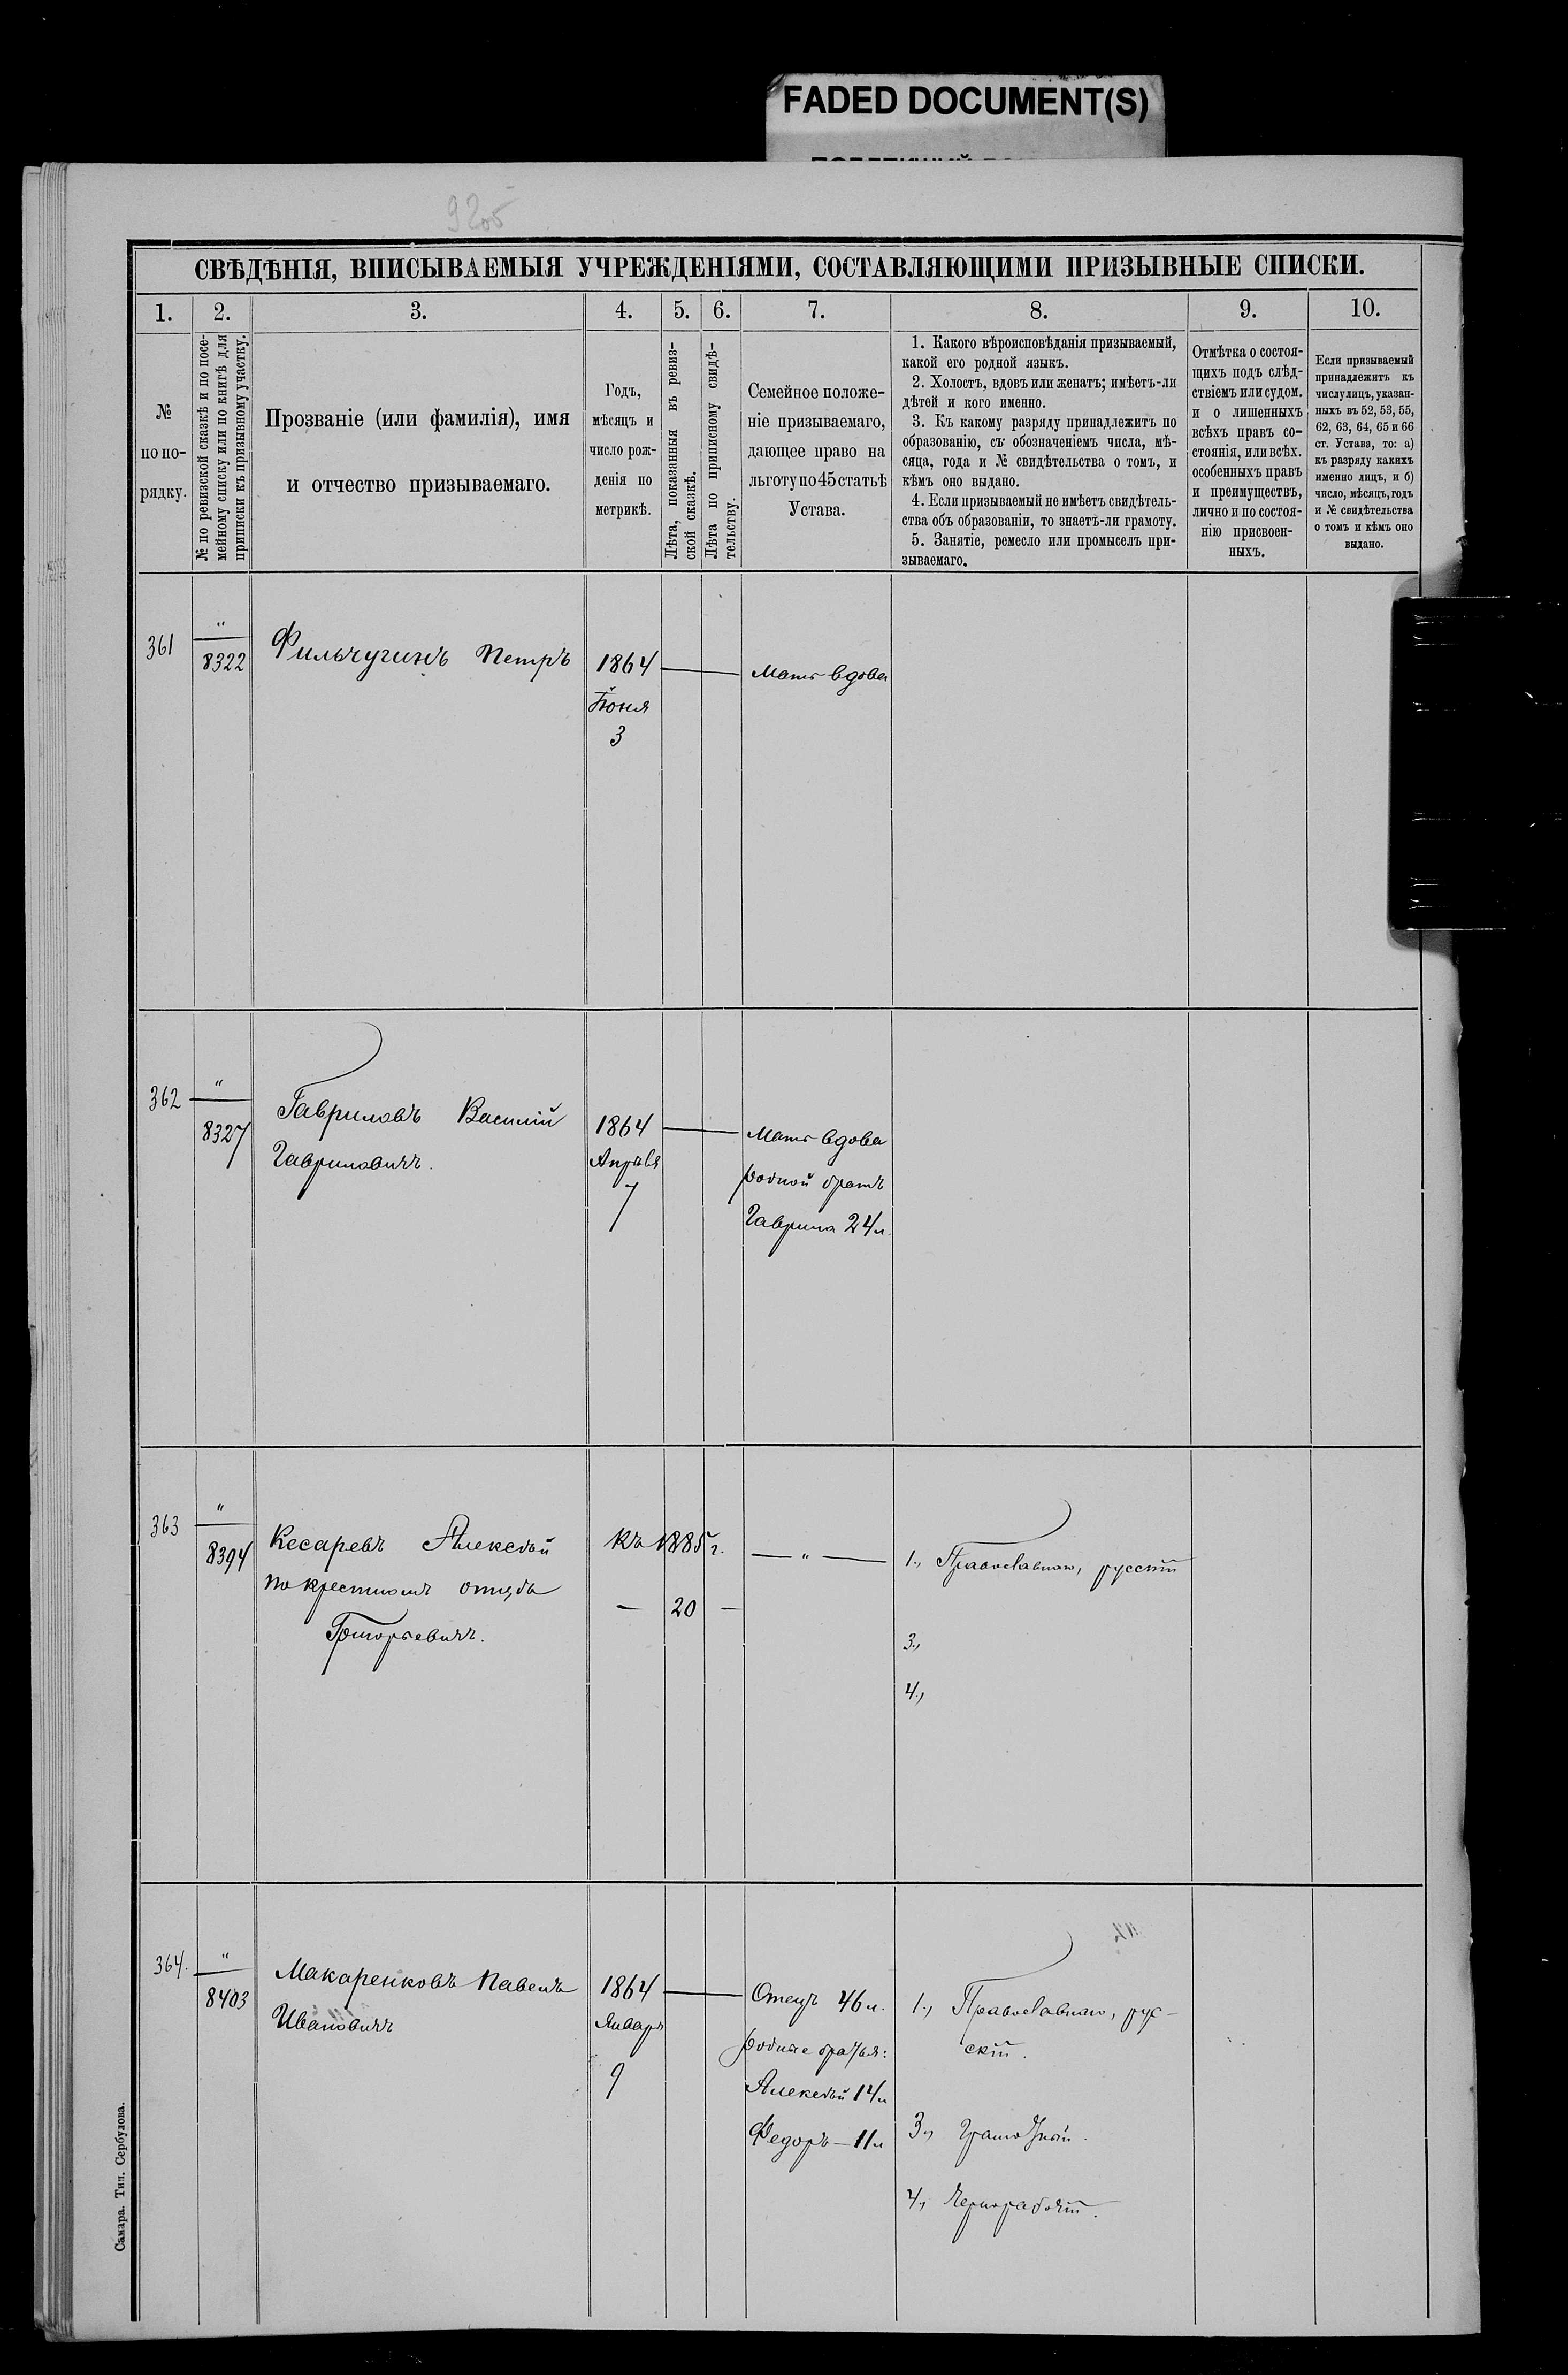 FADED DOCUMENT(S)
СВѢДѢНІЯ, ВПИСЫВАЕМЫЯ УЧРЕЖДЕНІЯМИ, СОСТАВЛЯЮЩИМИ ПРИЗЫВНЫЕ СПИСКИ.
1. 2. 3. 4. 5. 6. 7. 8. 9. 10.
№
по по-
рядку.
№ по ревизской сказкѣ и по посе-
мейному списку или по книгѣ для
приписки къ призывному участку.
Прозваніе (или фамилія), имя
и отчество призываемаго.
Годъ,
мѣсяцъ и
число рож-
денія по
метрикѣ.
Лѣта, показанныя въ ревиз-
ской сказкѣ.
Лѣта по приписному свидѣ-
тельству.
Семейное положе-
ніе призываемаго,
дающее право на
льготу по 45 статьѣ
Устава.
1. Какого вѣроисповѣданія призываемый,
какой его родной языкъ.
2. Холостъ, вдовъ или женатъ; имѣетъ-ли
дѣтей и кого именно.
3. Къ какому разряду принадлежитъ по
образованію, съ обозначеніемъ числа, мѣ-
сяца, года и № свидѣтельства о томъ, и
кѣмъ оно выдано.
4. Если призываемый не имѣетъ свидѣтель-
ства объ образованіи, то знаетъ-ли грамоту.
5. Занятіе, ремесло или промыселъ при-
зываемаго.
Отмѣтка о состоя-
щихъ подъ слѣд-
ствіемъ или судом.
и о лишенныхъ
всѣхъ правъ со-
стоянія, или всѣх.
особенныхъ правъ
и преимуществъ,
лично и по состоя-
нію присвоен-
ныхъ.
Если призываемый
принадлежитъ къ
числу лицъ, указан-
ныхъ въ 52, 53, 55,
62, 63, 64, 65 и 66
ст. Устава, то: а)
къ разряду какихъ
именно лицъ, и б)
число, мѣсяцъ, годъ
и № свидѣтельства
о томъ и кѣмъ оно
выдано.
361 " 8322 Фильчугинъ Петръ 1864 — Мать вдова
Іюня
3
362 " 8327 Гавриловъ Василій 1864 — Мать вдова
Гавриловичъ. Апрѣля родной братъ
7 Гаврила 24 л.
363 " 8394 Кесаревъ Алексѣй къ 1885 г. — " — 1., Православнаго, русскій
по крестномъ отцѣ — 20 —
Григорьевичъ. 3.,
4.,
364. " 8403 Макаренковъ Павелъ 1864 — Отецъ 46 л. 1., Православнаго, рус-
Ивановичъ Январь родные братья: скій.
9 Алексѣй 14 л
Федоръ — 11 л 3., Грамотный.
4., Чернорабочій.
Самара. Тип. Сербулова.